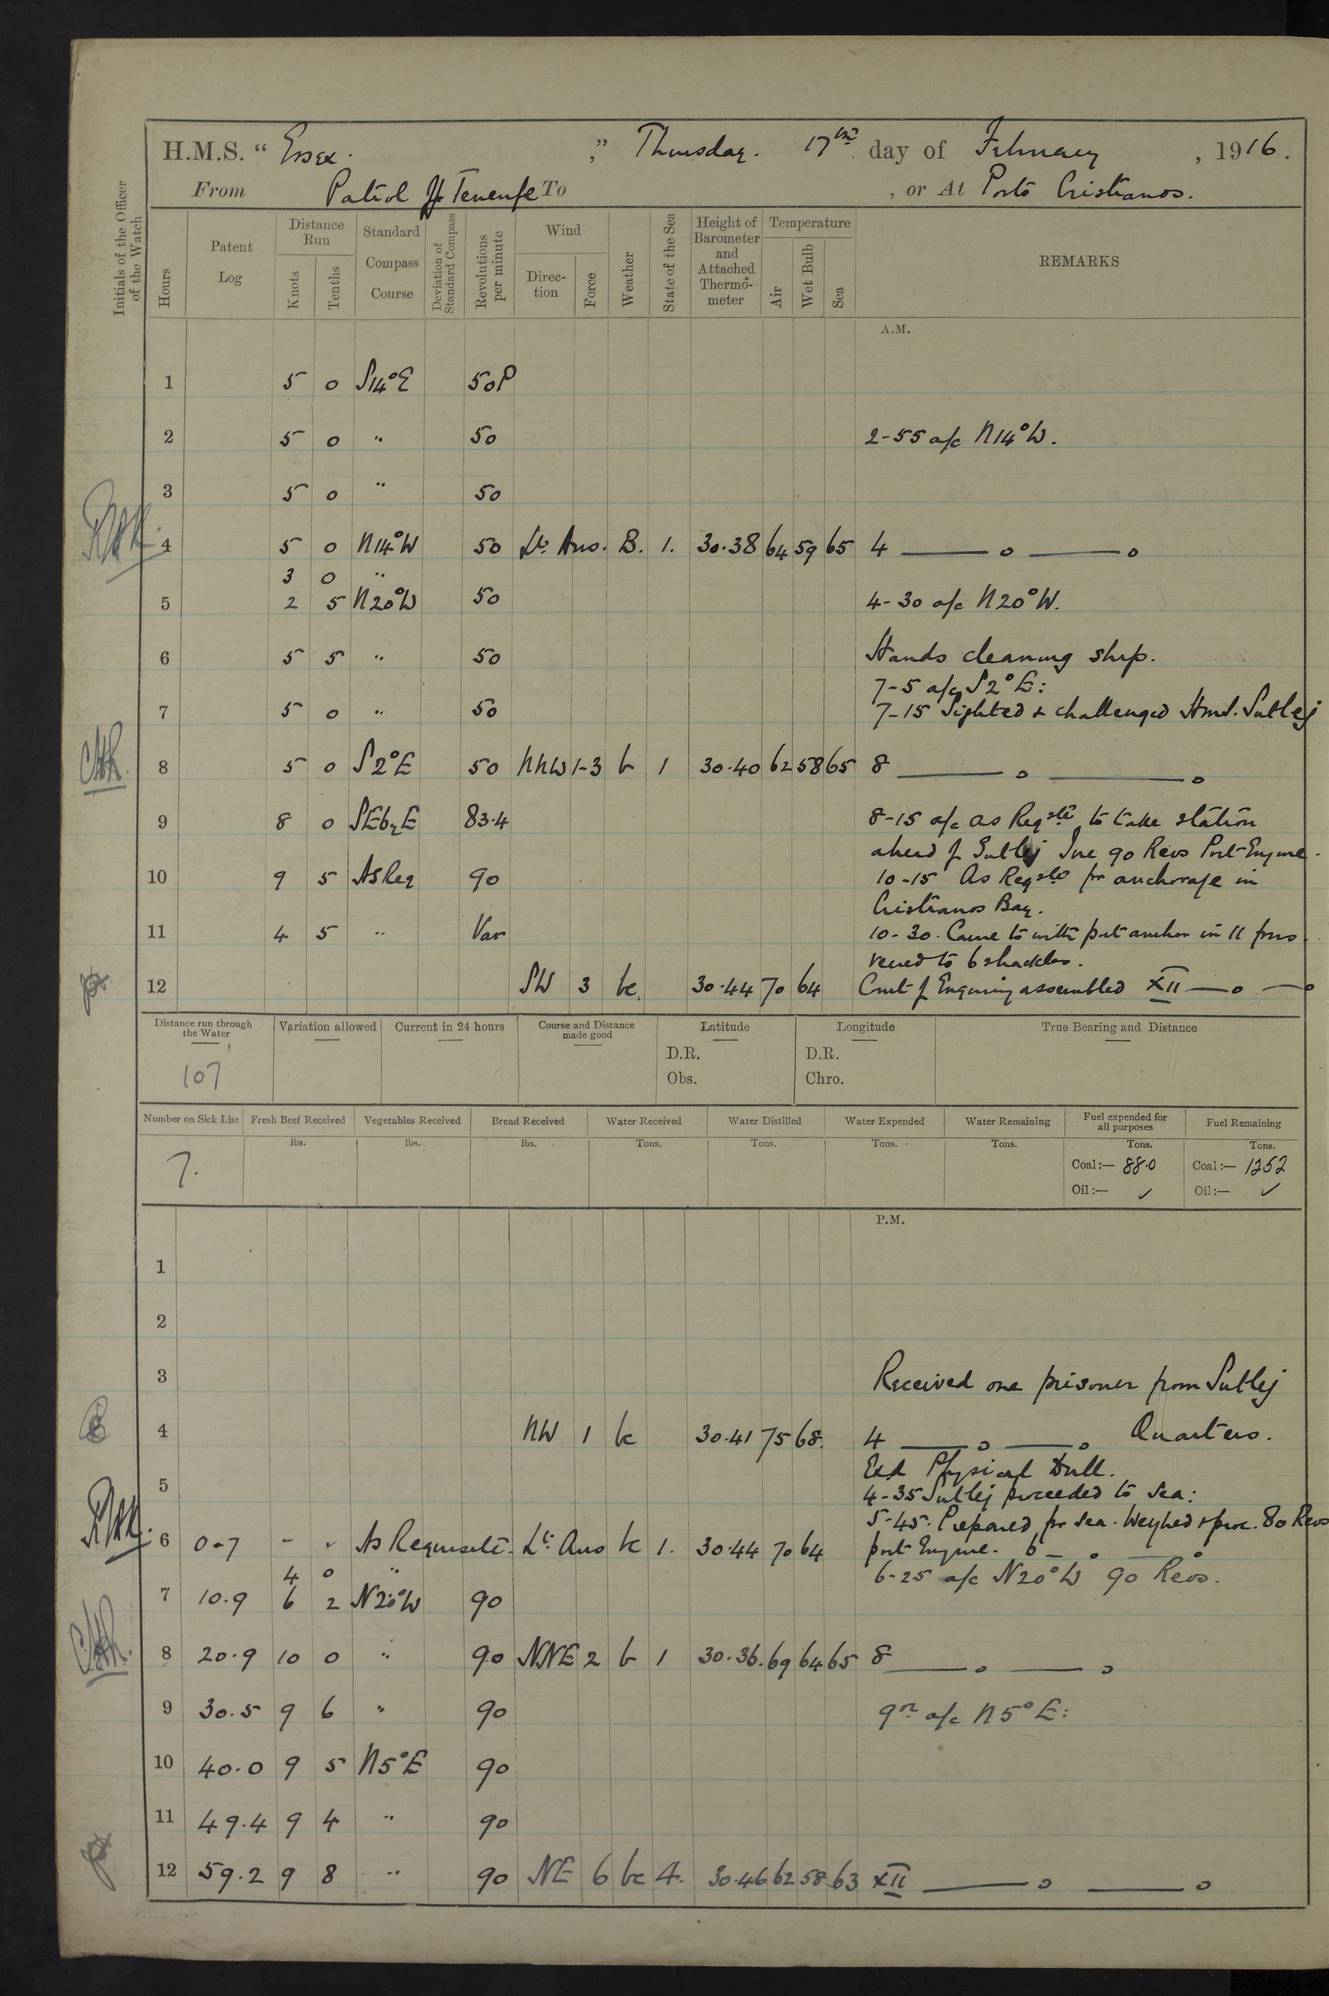 H.M.S. “ Essex. ,” Thursday. 17th day of February , 1916.
From Patrol off Tenerife To , or At Porto Cristianos.
Initials of the Officer of the Watch
Hours Patent Log Distance Run Knots Tenths Standard Compass Course Deviation of Standard Compass Revolutions per minute Wind Direction Force Weather State of the Sea Height of Barometer and Attached Thermometer Temperature Air Wet Bulb Sea REMARKS
A.M.
1 5 0 S14°E 50P
2 5 0 " 50 2-55 a/c N14°W.
3 5 0 " 50
4 5 0 N14°W 50 Lt. Airs. B. 1. 30.38 64 59 65 4 — o — o
3 0 "
5 2 5 N20°W 50 4-30 a/c N20°W.
6 5 5 " 50 Hands cleaning ship.
7-5 a/c S2°E:
7 5 0 " 50 7-15 Sighted & challenged H.M.S. Sutlej
8 5 0 S2°E 50 NNW 1-3 b 1 30.40 62 58 65 8 — o — o
9 8 0 SEbyE 83.4 8-15 a/c as Reqste to take station
ahead of Sutlej Inc 90 Revs Port Engine.
10 9 5 As Req 90 10-15 As Reqste for anchorage in
Cristianos Bay.
11 4 5 " Var 10-30. Came to with port anchor in 11 fms.
veered to 6 shackles.
12 SW 3 bc. 30.44 70 64 Court of Enquiry assembled XII — o — o
Distance run through the Water Variation allowed Current in 24 hours Course and Distance made good Latitude Longitude True Bearing and Distance
D.R. D.R.
107 Obs. Chro.
Number on Sick List Fresh Beef Received Vegetables Received Bread Received Water Received Water Distilled Water Expended Water Remaining Fuel expended for all purposes Fuel Remaining
lbs. lbs. lbs. Tons. Tons. Tons. Tons. Tons. Tons.
7. Coal:— 88.0 Coal:— 1252
Oil:— ✓ Oil:— ✓
P.M.
1
2
3 Received one prisoner from Sutlej
4 NW 1 bc 30.41 75 68. 4 — o — o Quarters.
Exd Physical Drill.
5 4-35 Sutlej proceeded to sea:
5-45. Prepared for sea. Weighed & proc. 80 Revs
6 0.7 - - As Requisite. Lt. Airs bc 1. 30.44 70 64 port Engine. 6 — o — o
4 0 " 6-25 a/c N20°W 90 Revs.
7 10.9 6 2 N20°W 90
8 20.9 10 0 " 90 NNE 2 b 1 30.36. 69 64 65 8 — o — o
9 30.5 9 6 " 90 9pm a/c N5°E:
10 40.0 9 5 N5°E 90
11 49.4 9 4 " 90
12 59.2 9 8 " 90 NE 6 bc 4. 30.46 62 58 63 XII — o — o